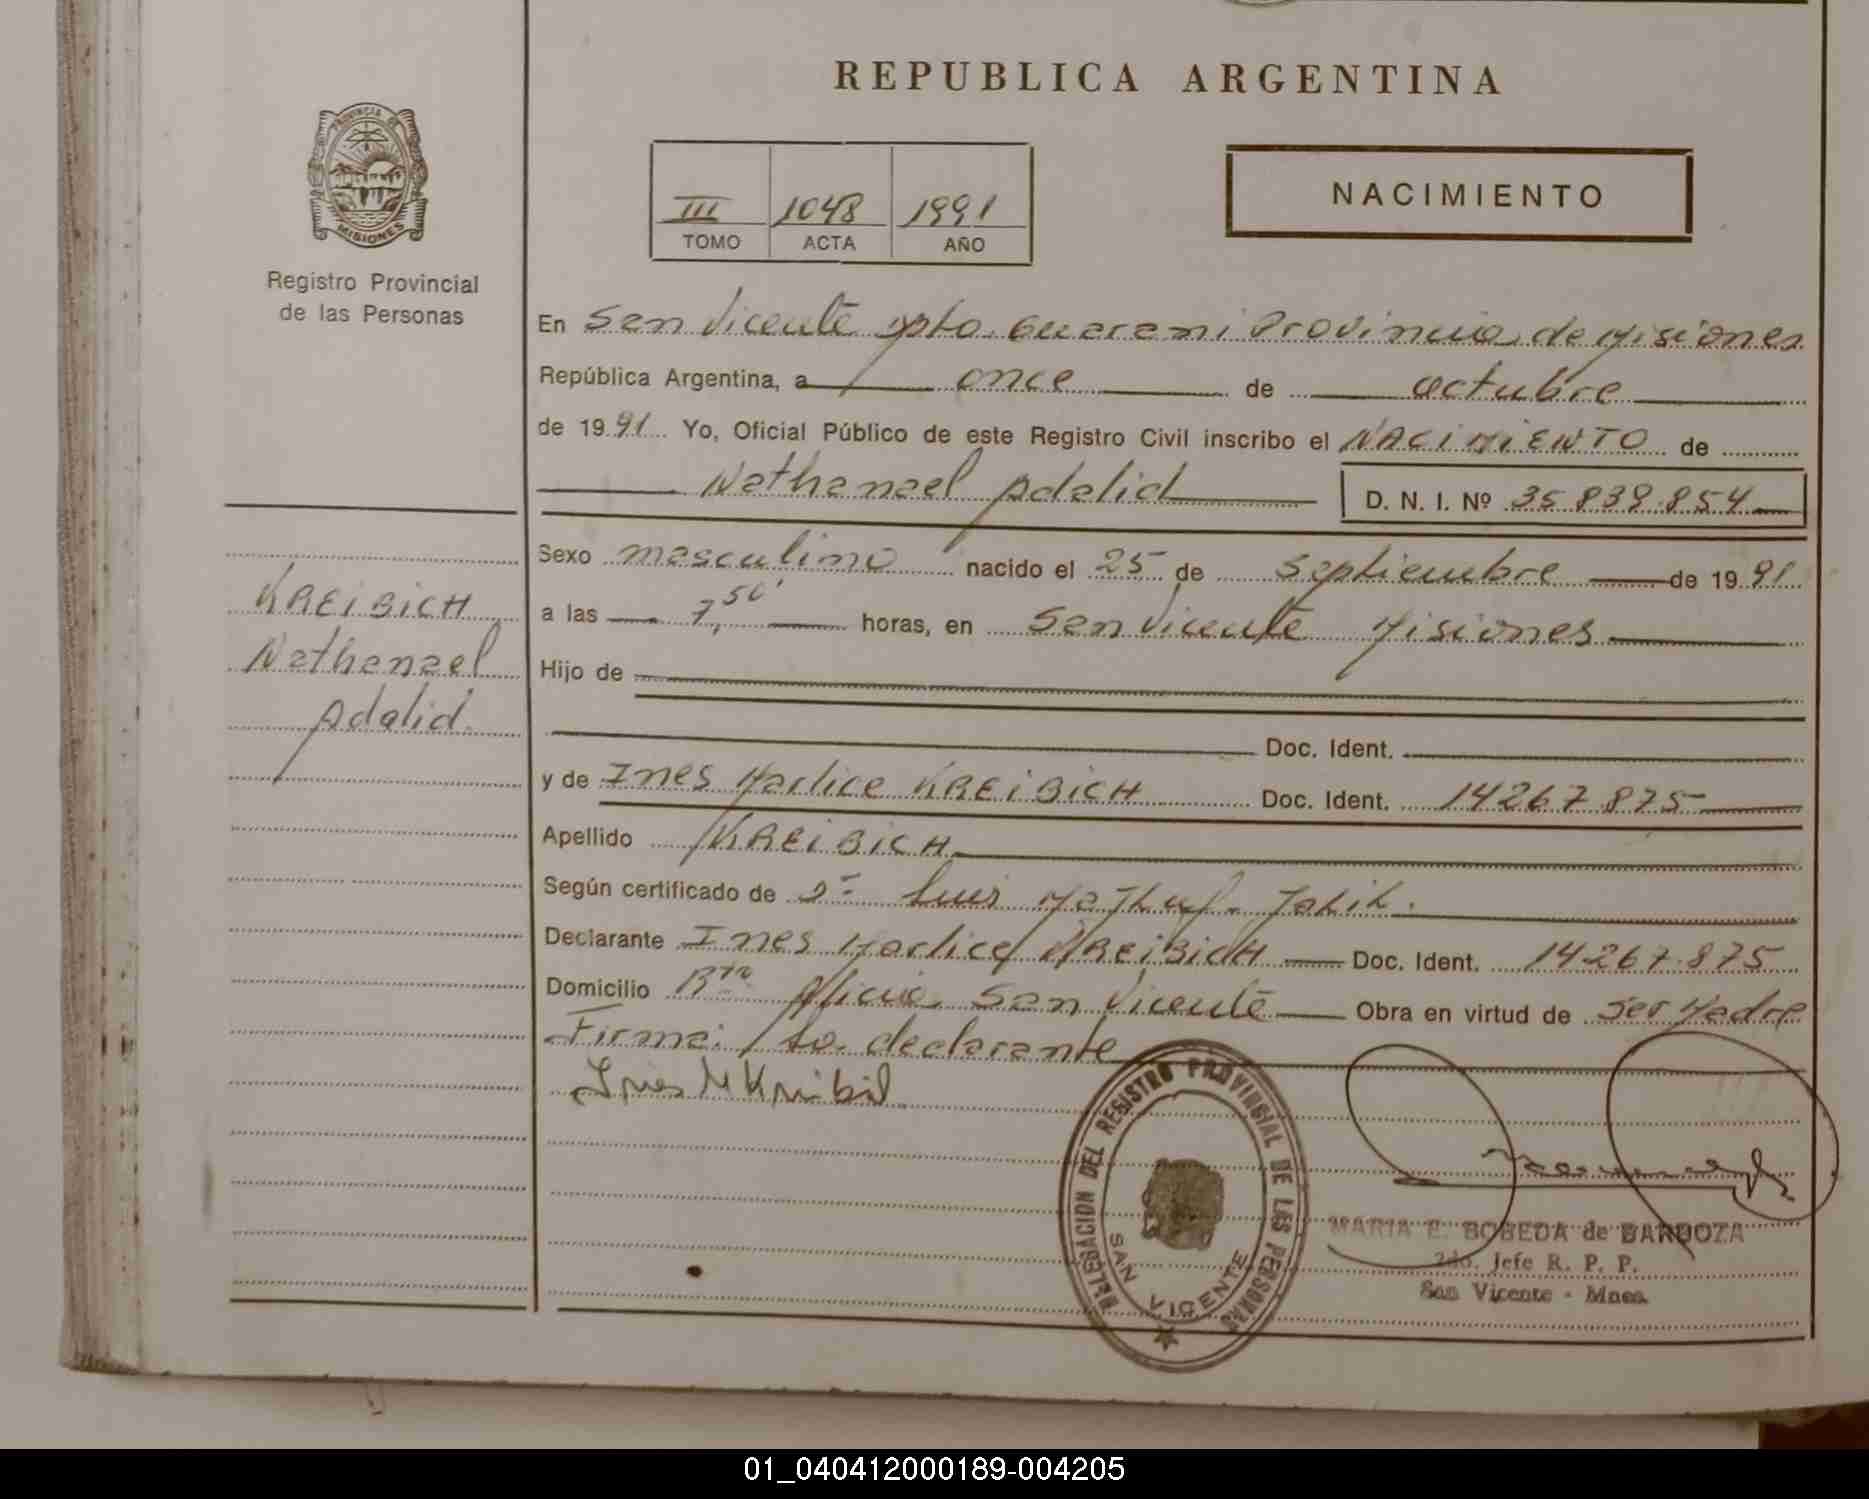 REPUBLICA ARGENTINA
PROVINCIA DE
MISIONES
Registro Provincial
de las Personas
III 1048 1991
TOMO ACTA AÑO
NACIMIENTO
En San Vicente Dpto. Guarani Provincia de Misiones
República Argentina, a once de octubre
de 1991 Yo, Oficial Público de este Registro Civil inscribo el NACIMIENTO de
Nathanael Adalid D. N. I. Nº 35.839.854
KREIBICH
Nathanael
Adalid
Sexo masculino nacido el 25 de Septiembre de 1991
a las 7,50' horas, en San Vicente Misiones
Hijo de
Doc. Ident.
y de Ines Marlice KREIBICH Doc. Ident. 14267.875
Apellido KREIBICH
Según certificado de Luis
Declarante Ines Marlice KREIBICH Doc. Ident. 14267.875
Domicilio San Vicente Obra en virtud de ser Madre
Firma: la declarante
Ines M Kreibich
DELEGACION DEL REGISTRO PROVINCIAL DE LAS PERSONAS
SAN VICENTE
MARIA E. BOBEDA de BARBOZA
2do. Jefe R. P. P.
San Vicente - Mnes.
01_040412000189-004205